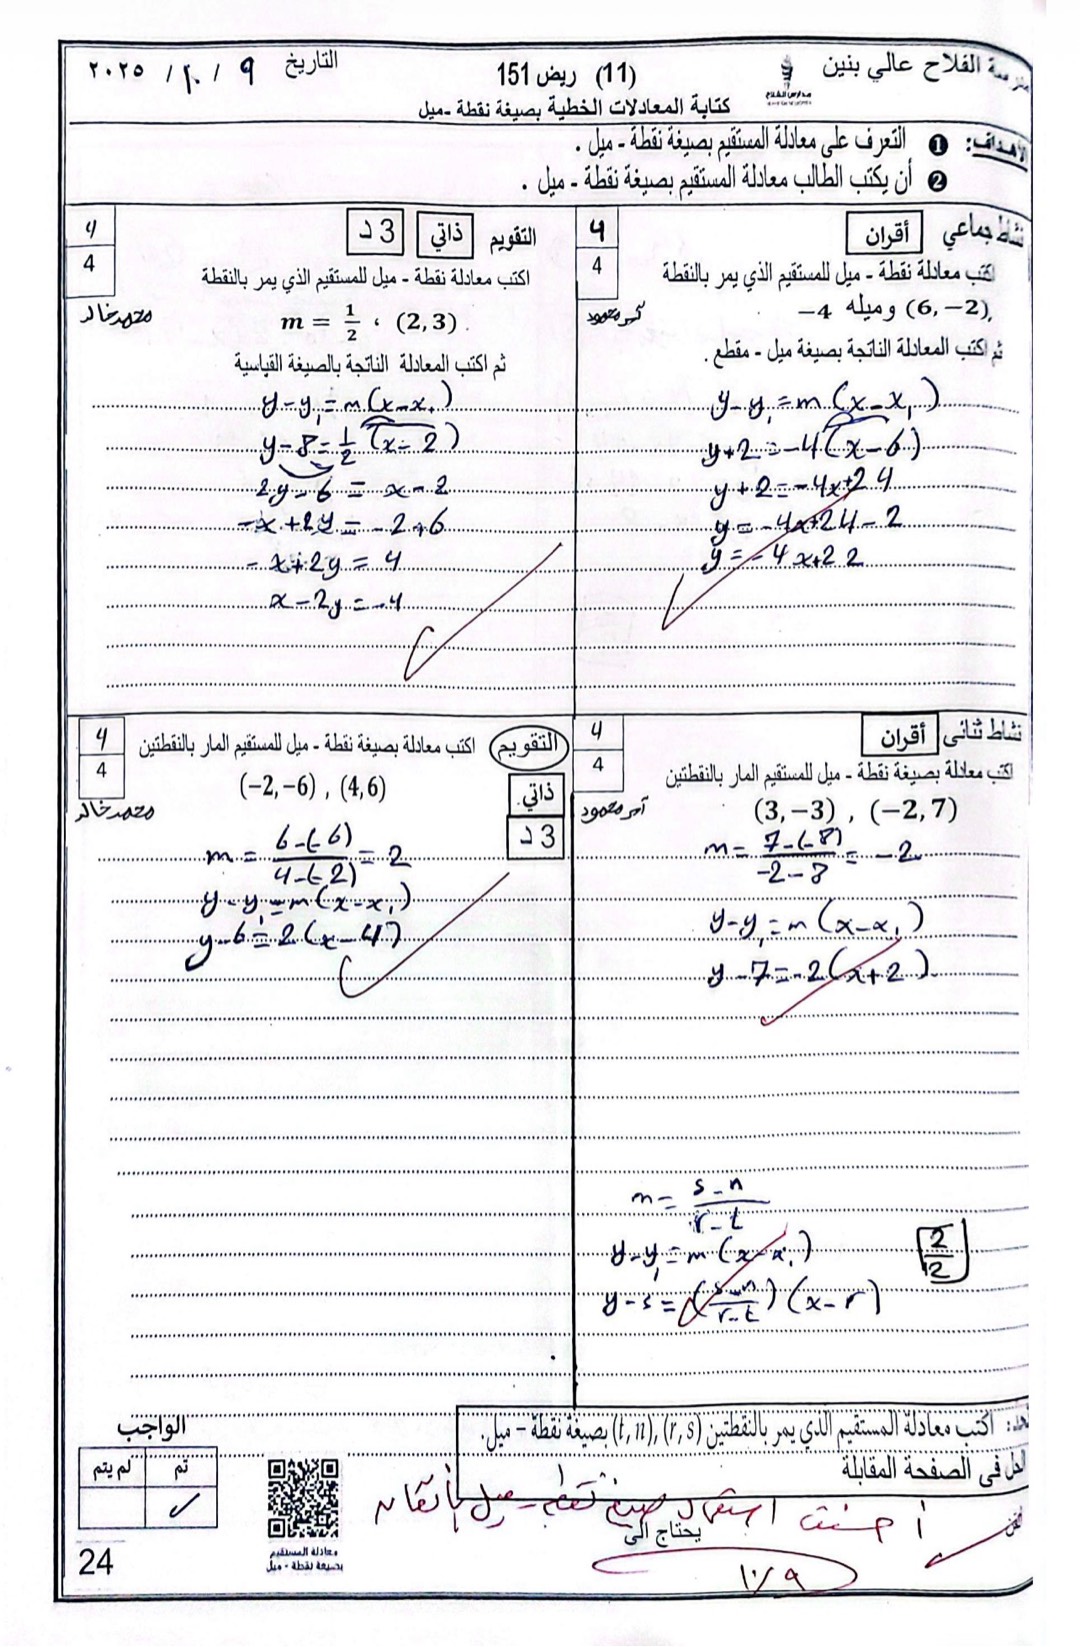 مدرسة الفلاح عالي بنين
(11) ريض 151
التاريخ ٩ / ١٠ / ٢٠٢٥
كتابة المعادلات الخطية بصيغة نقطة -ميل
الأهداف: ❶ التعرف على معادلة المستقيم بصيغة نقطة - ميل .
❷ أن يكتب الطالب معادلة المستقيم بصيغة نقطة - ميل .
نشاط جماعي أقران
4
4
اكتب معادلة نقطة - ميل للمستقيم الذي يمر بالنقطة
(6, −2), وميله 4−
ثم اكتب المعادلة الناتجة بصيغة ميل - مقطع .
y-y₁=m(x-x₁)
y+2=-4(x-6)
y+2=-4x+24
y=-4x+24-2
y=-4x+22
التقويم ذاتي 3 د
4
4
اكتب معادلة نقطة - ميل للمستقيم الذي يمر بالنقطة
محمد خالد
m = 1/2 ، (2, 3) .
ثم اكتب المعادلة الناتجة بالصيغة القياسية
y-y₁=m(x-x₁)
y-8=1/2(x-2)
2y-6=x-2
-x+2y=-2+6
-x+2y=4
x-2y=-4
نشاط ثنائى أقران
4
4
اكتب معادلة بصيغة نقطة - ميل للمستقيم المار بالنقطتين
(3, −3) , (−2, 7)
m=7-(-8)/-2-8=-2
y-y₁=m(x-x₁)
y-7=-2(x+2)
m=s-n/r-t
y-y₁=m(x-x₁)
2/2
y-s=(s-n/r-t)(x-r)
التقويم
ذاتي
3 د
4
4
اكتب معادلة بصيغة نقطة - ميل للمستقيم المار بالنقطتين
(−2, −6) , (4, 6)
محمد خالد
m=6-(-6)/4-(-2)=2
y-y₁=m(x-x₁)
y-6=2(x-4)
اكتب معادلة المستقيم الذي يمر بالنقطتين (t, n), (r, s) بصيغة نقطة – ميل.
الحل فى الصفحة المقابلة
الواجب
تم لم يتم
✓
أحسنت استعمال صيغة نقطة - ميل بإتقان
يحتاج الى
٩/١٠
معادلة المستقيم
بصيغة نقطة - ميل
24